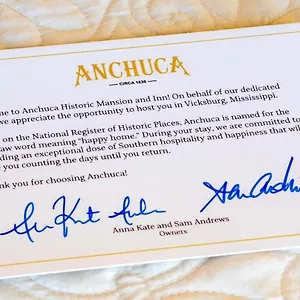 ANCHUCA
CIRCA 1830
me to Anchuca Historic Mansion and Inn! On behalf of our dedicated
we appreciate the opportunity to host you in Vicksburg, Mississippi.
on the National Register of Historic Places, Anchuca is named for the
aw word meaning "happy home." During your stay, we are committed to
ding an exceptional dose of Southern hospitality and happiness that wil
you counting the days until you return.
nk you for choosing Anchuca!
Anna Kate and Sam Andrews
Owners